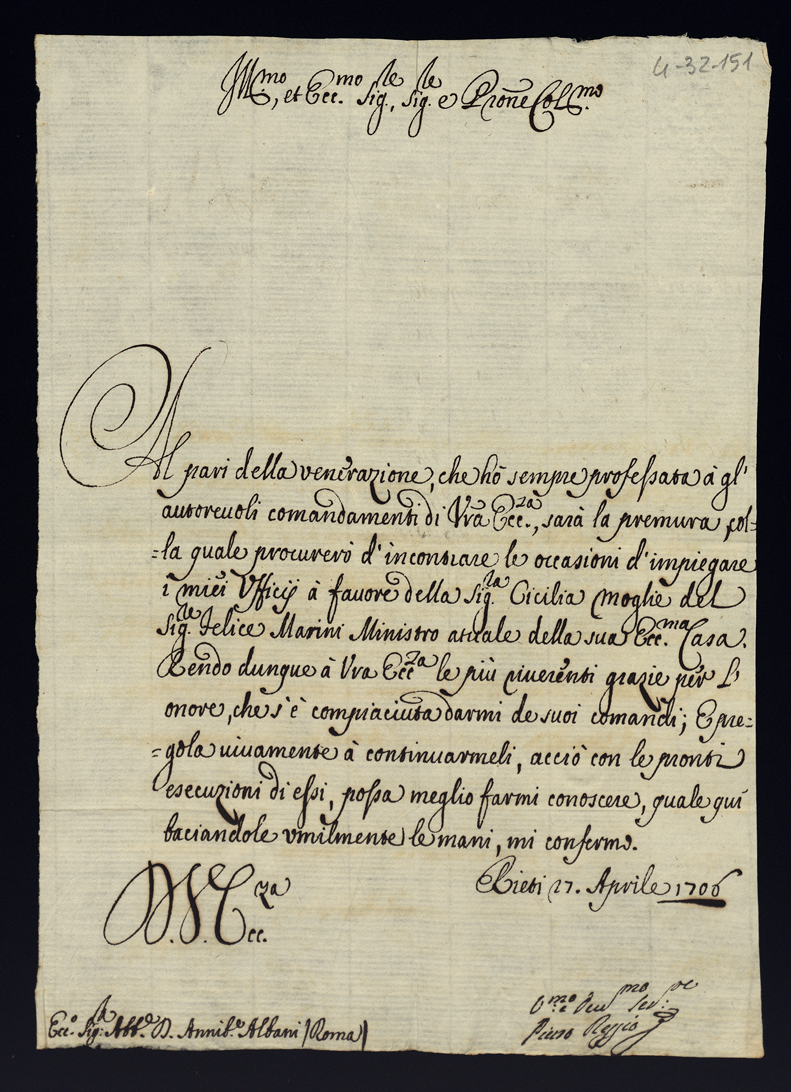 4-32-151
Ill.mo, et Ecc.mo Sig.le, Sig.le e Prone Col.mo
Al pari della venerazione, che hò sempre professata à gl'
autoreuoli comandamenti di Vra Ecc.za, sarà la premura, col=
=la quale procurerò d'incontrare le occasioni d'impiegare
i miei Vfficij à fauore della Sig.la Cicilia moglie del
Sig.le Felice Marini Ministro atuale della sua Ecc.ma Casa.
Rendo dunque à Vra Ecc.za le più riuerenti grazie per l'
onore, che s'è compiaciuta darmi de suoi comandi; E pre=
=gola uiuamente à continuarmeli, acciò con le pronti
esecuzioni di essi, possa meglio farmi conoscere, quale qui
baciandole vmilmente le mani, mi confermo.
D. V. Ecc.za
Rieti 27. Aprile 1706
Ecc.o Sig.le Abb.e D. Annib.e Albani (Roma)
Deu.mo Ser.re
Reggio